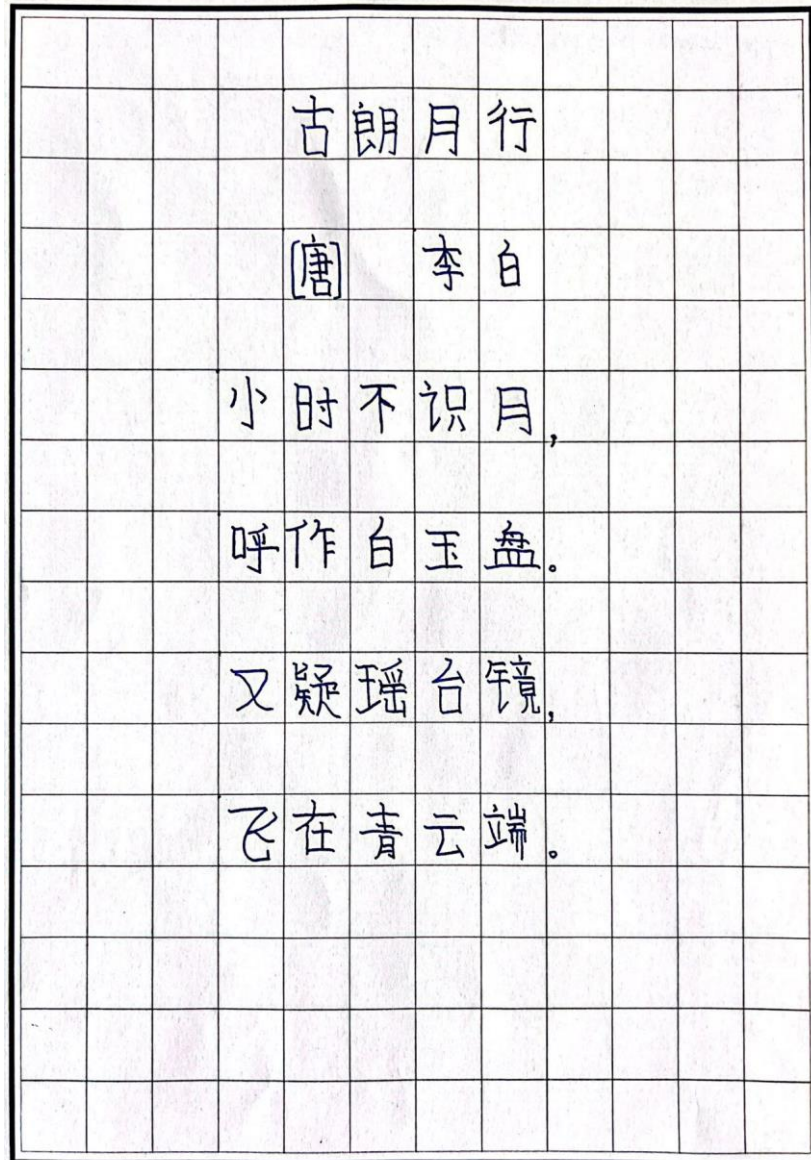 古朗月行
[唐] 李白
小时不识月，
呼作白玉盘。
又疑瑶台镜，
飞在青云端。